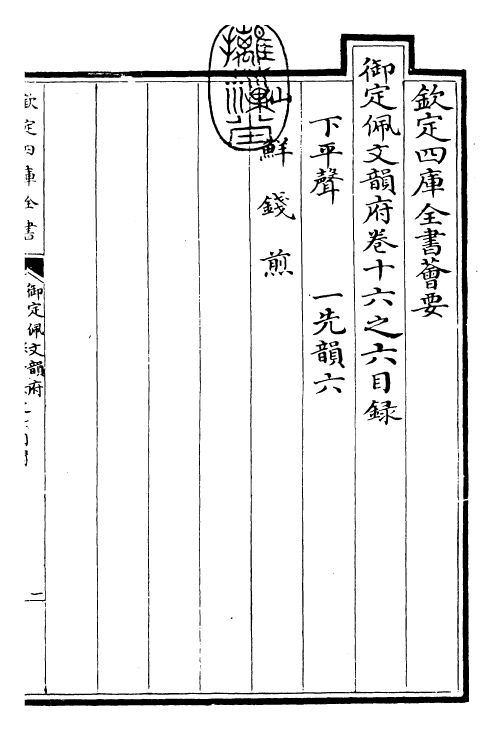 欽定四庫全書薈要
御定佩文韻府卷十六之六目録
下平聲　一先韻六
鮮　錢　煎
欽定四庫全書
御定佩文韻府